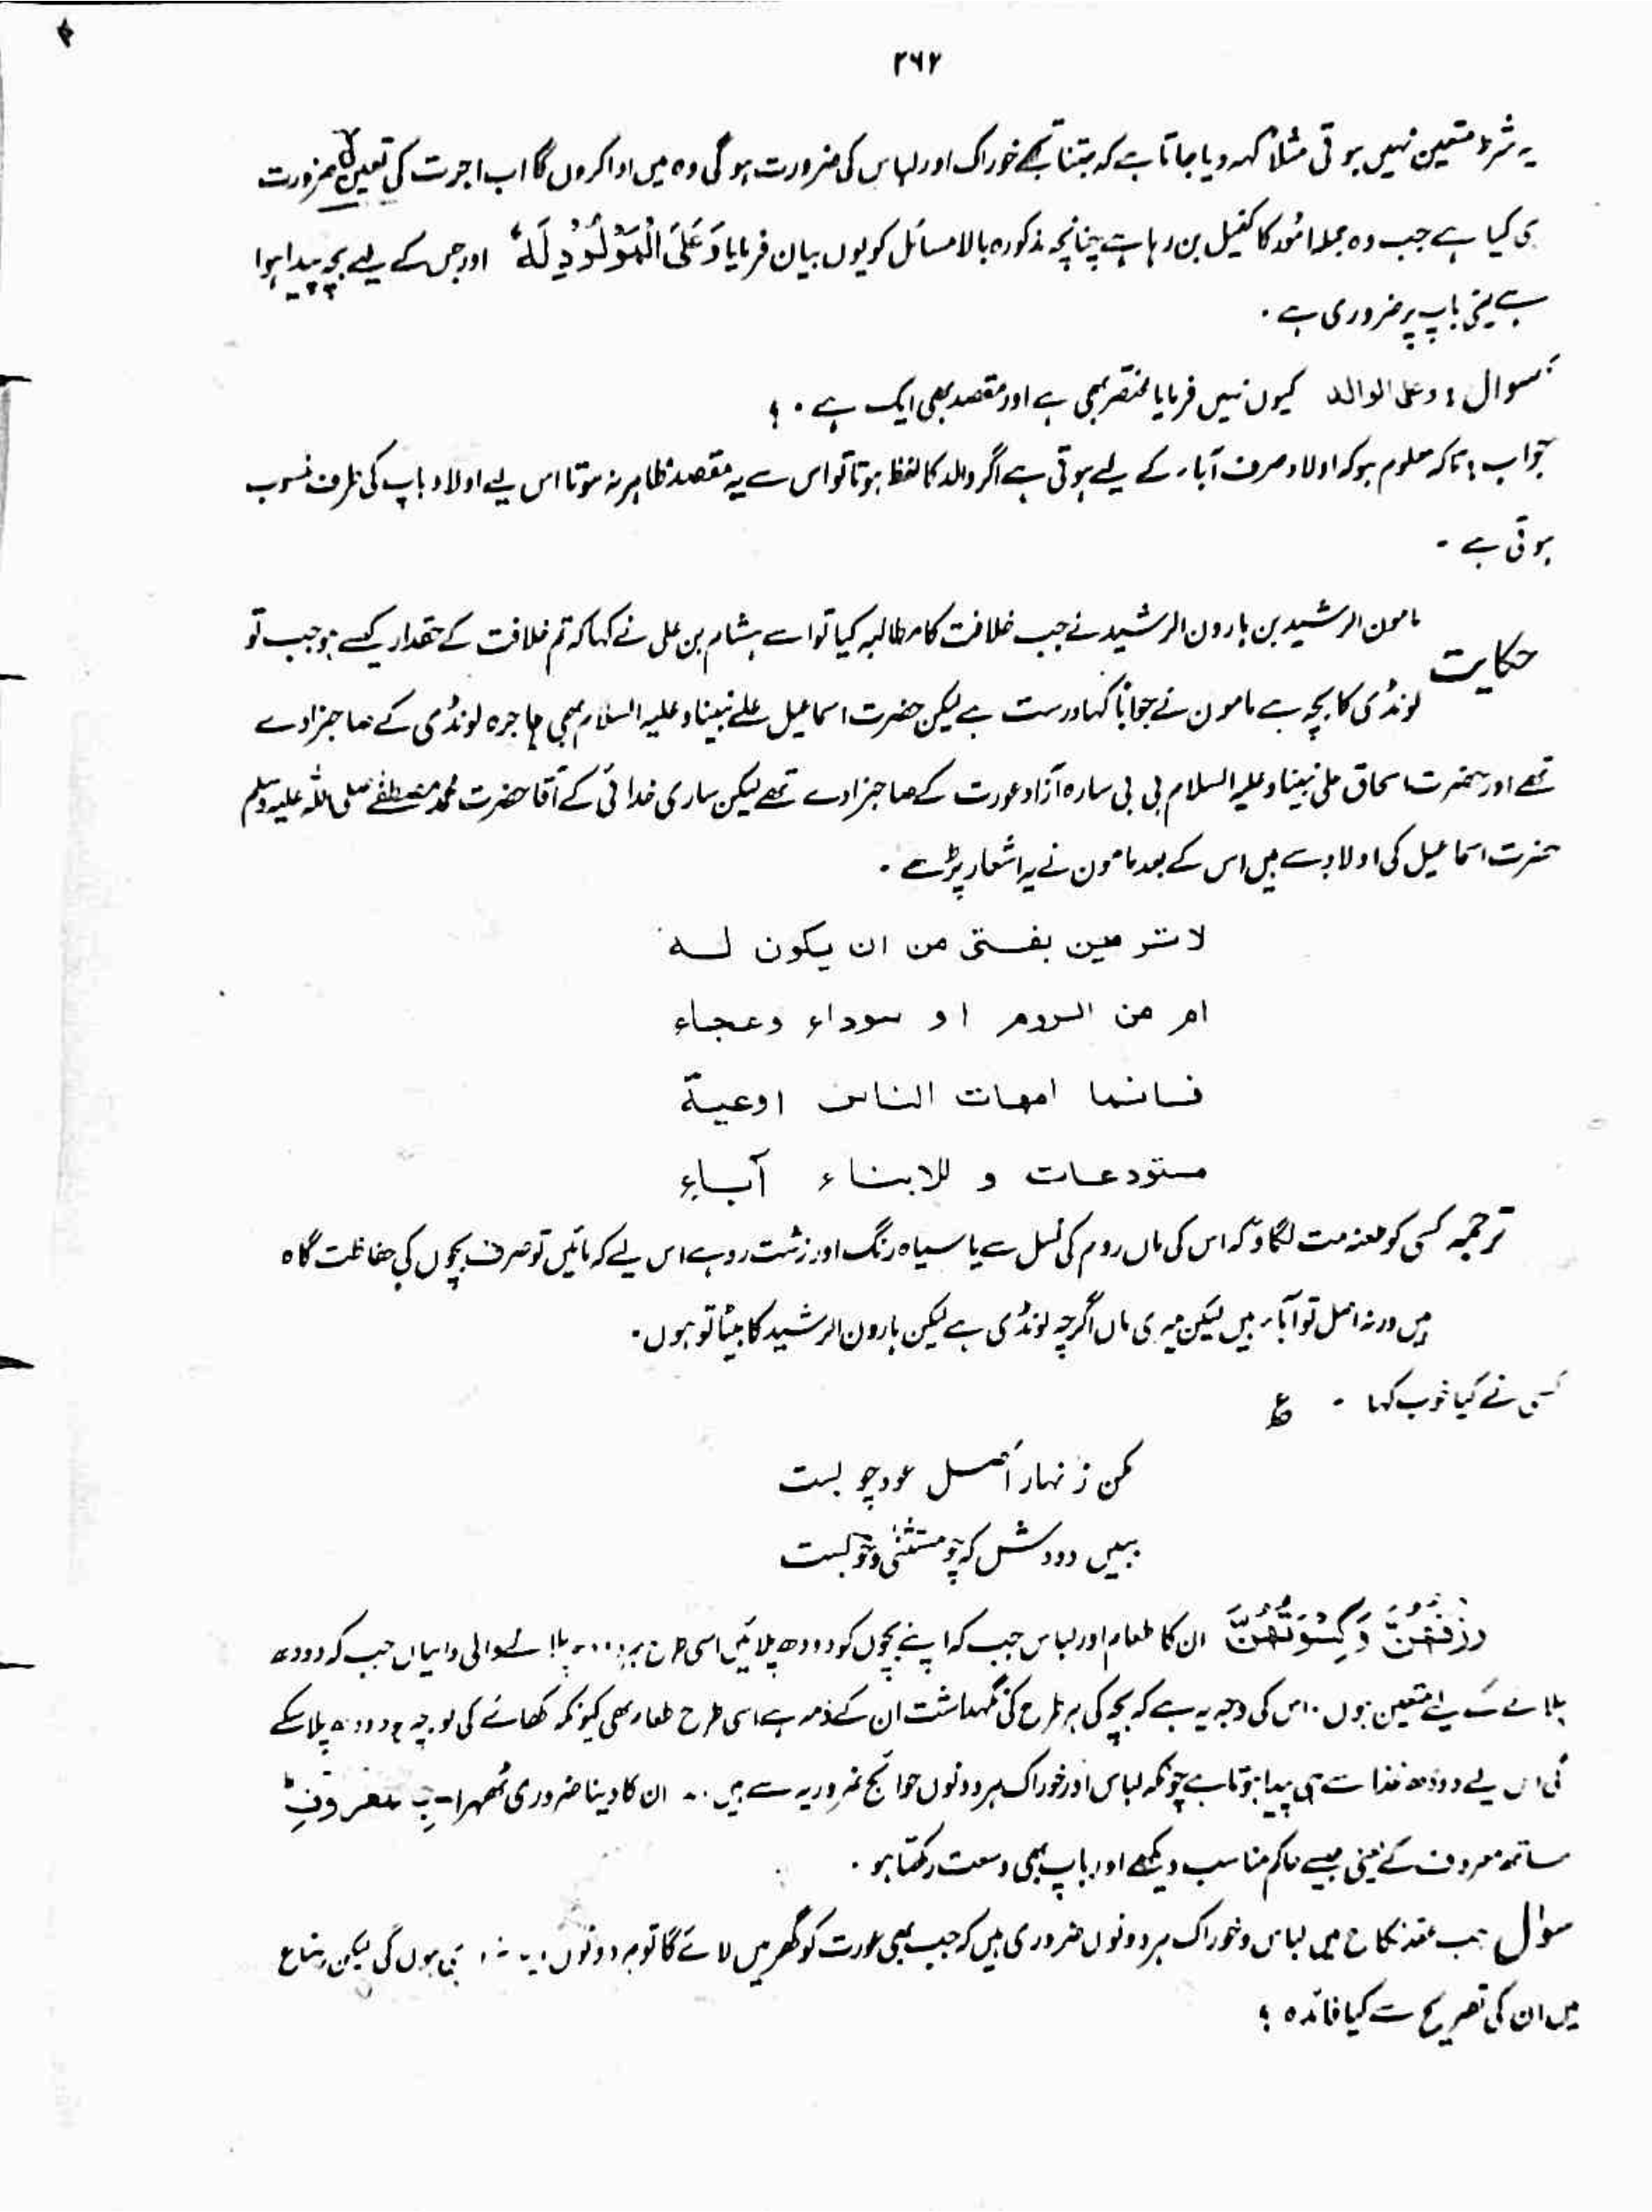 ۲۶۲
یہ شرط متعین نہیں ہوتی مثلاً کہہ دیا جاتا ہے کہ جتنا تجھے خوراک اور لباس کی ضرورت ہوگی وہ میں ادا کروں گا اب اجرت کی تعیین کی ضرورت
ہی کیا ہے جب وہ جملہ امور کا کفیل بن رہا ہے چنانچہ مذکورہ بالا مسائل کو یوں بیان فرمایا وَعَلَی الْمَوْلُوْدِ لَہٗ اور جس کے لیے بچہ پیدا ہوا
ہے یعنی باپ پر ضروری ہے ۔
سوال : وعلی الوالد کیوں نہیں فرمایا مختصر بھی ہے اور مقصد بھی ایک ہے ۔ ؟
جواب : تاکہ معلوم ہو کہ اولاد صرف آباء کے لیے ہوتی ہے اگر والد کا لفظ ہوتا تو اس سے یہ مقصد ظاہر نہ ہوتا اس لیے اولاد باپ کی طرف منسوب
ہوتی ہے ۔
حکایت مامون الرشید بن ہارون الرشید نے جب خلافت کا مطالبہ کیا تو اسے ہشام بن علی نے کہا کہ تم خلافت کے حقدار کیسے ہو جب تو
لونڈی کا بچہ ہے مامون نے جواباً کہا درست ہے لیکن حضرت اسماعیل علیٰ نبینا وعلیہ السلام بھی ہاجرہ لونڈی کے صاحبزادے
تھے اور حضرت اسحاق علی نبینا وعلیہ السلام بی بی سارہ آزاد عورت کے صاحبزادے تھے لیکن ساری خدائی کے آقا حضرت محمد مصطفےٰ صلی اللہ علیہ وسلم
حضرت اسماعیل کی اولاد سے ہیں اس کے بعد مامون نے یہ اشعار پڑھے ۔
لا تزمین بفتی من ان یکون لہ
ام من الروم او سوداء وعجاء
فانما امهات الناس اوعیة
مستودعات و للابناء آباء
ترجمہ کسی کو طعنہ مت لگاؤ کہ اس کی ماں روم کی نسل سے یا سیاہ رنگ اور زشت رو ہے اس لیے کہ مائیں تو صرف بچوں کی حفاظت گاہ
ہیں ورنہ اصل تو آباء ہیں لیکن میری ماں اگرچہ لونڈی ہے لیکن ہارون الرشید کا بیٹا تو ہوں ۔
کسی نے کیا خوب کہا ۔ ع
مکن زنہار اصل عود چوبست
ببیں دودش کہ چو مستثنیٰ وخوبست
رِزْقُهُنَّ وَكِسْوَتُهُنَّ ان کا طعام اور لباس جب کہ اپنے بچوں کو دودھ پلائیں اسی طرح پلانے والی دایاں جب کہ دودھ
پلانے کے لیے متعین ہوں ۔ اس کی وجہ یہ ہے کہ بچہ کی ہر طرح کی نگہداشت ان کے ذمہ ہے اسی طرح طعام بھی کیونکہ کھانے کی بوجہ دودھ پلا سکے
گی اس لیے دودھ غذا سے ہی پیدا ہوتا ہے چونکہ لباس اور خوراک ہر دونوں حوائج ضروریہ سے ہیں ان کا دینا ضروری ٹھہرا ۔ معروف
ساتھ معروف کے یعنی جیسے حاکم مناسب دیکھے اور باپ بھی وسعت رکھتا ہو ۔
سوال جب عقد نکاح میں لباس و خوراک ہر دونوں ضروری ہیں کہ جب بھی عورت کو گھر میں لائے گا تو ہر دونوں ہی ہوں گی لیکن رضاع
میں ان کی تصریح سے کیا فائدہ ؟